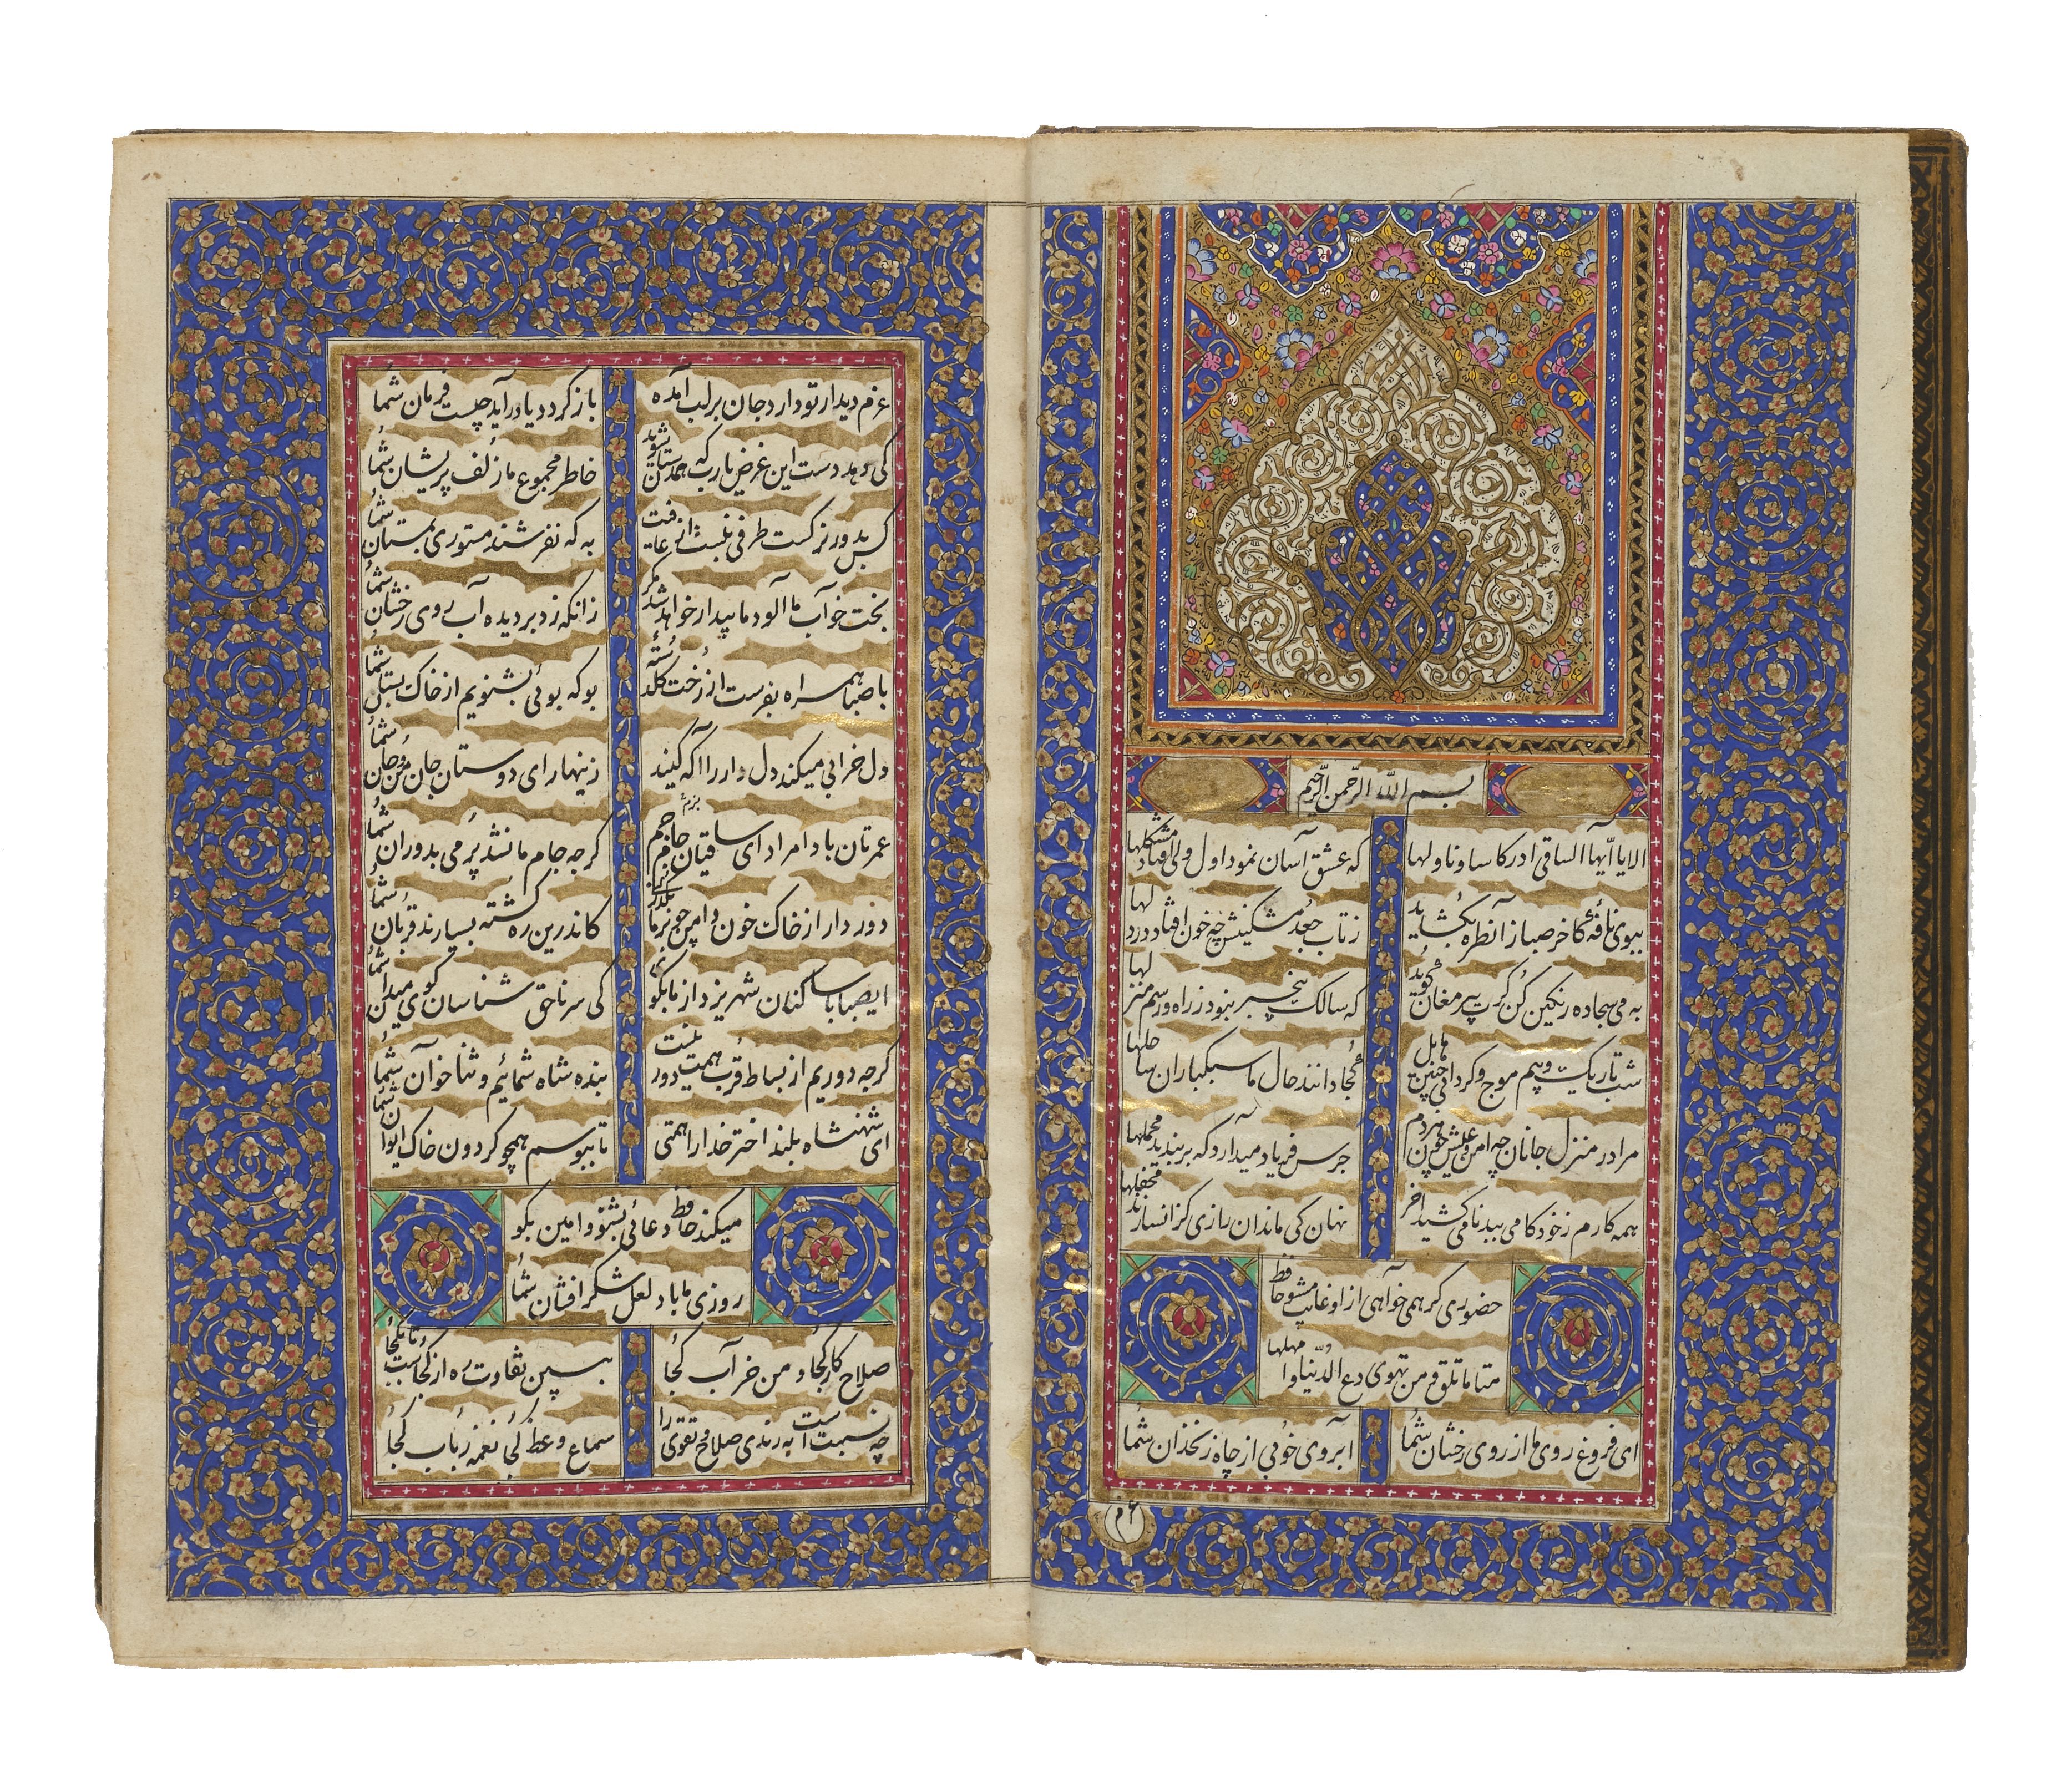 بسم الله الرّحمن الرّحیم
الا یا ایّها السّاقی ادر کاسا و ناولها که عشق آسان نمود اول ولی افتاد مشکلها
ببوی نافهٔ کاخر صبا زآنطره بکشاید زتاب جعد مشکینش چه خون افتاد در دلها
به می سجاده رنکین کن کرت پیر مغان کوید که سالک بیخبر نبود ز راه و رسم منزلها
شب تاریک و بیم موج و کردابی چنین هایل کجا دانند حال ما سبکباران ساحلها
مرا در منزل جانان چه امن و عیش چون هر دم جرس فریاد میدارد که بربندید محملها
همه کارم ز خود کامی ببدنامی کشید اخر نهان کی ماند ان رازی کز انسازند محفلها
حضوری کر همی خواهی از او غایب مشو حافظ
متا ما تلق من تهوی دع الدّنیا و اهملها
ای فروغ روی ماه از روی رخشان شما ابروی خوبی از چاه زنخدان شما
۲م
عزم دیدار تو دارد جان برلب آمده باز کردد یا درآید چیست فرمان شما
کی دهد دست این غرض یارب که همدستان شوند خاطر مجموع ما زلف پریشان شما
کس بدور نرکست طرفی نبست از عافیت به که نفرشند مستوری بمستان شما
بخت خوآب آلود ما بیدار خواهد شد مکر زانکه زد بر دیده آب روی رخشان شما
با صبا همراه بفرست از رخت کلدستهٔ بو که بوئی بشنویم از خاک بستان شما
دل خرابی میکند دلدار را اکه کنید زینهار ای دوستان جان من و جان شما
عمرتان باد امراد ای ساقیان بزم جم کرچه جام ما نشد پُر می بدوران شما
دور دار از خاک خون دامن چو بر ما بکذری کاندرین ره کشته بسیارند قربان شما
ایصبا با ساکنان شهر یزد از ما بکو کی سر ناحق شناسان کوی میدان شما
کرچه دوریم از بساط قرب همت دور نیست بنده شاه شمائیم و ثنا خوآن شما
ای شهنشاه بلند اختر خدا را همتی تا ببوسم همچو کردون خاک ایوان شما
میکند حافظ دعائی بشنو و امین بکو
روزی ما باد لعل شکر افشان شما
صلاح کار کجا و من خرآب کجا ببین تفاوت ره از کجاست تا بکجا
چه نسبت است به رندی صلاح و تقوی را سماع وعظ کجا نغمه ربآب کجا